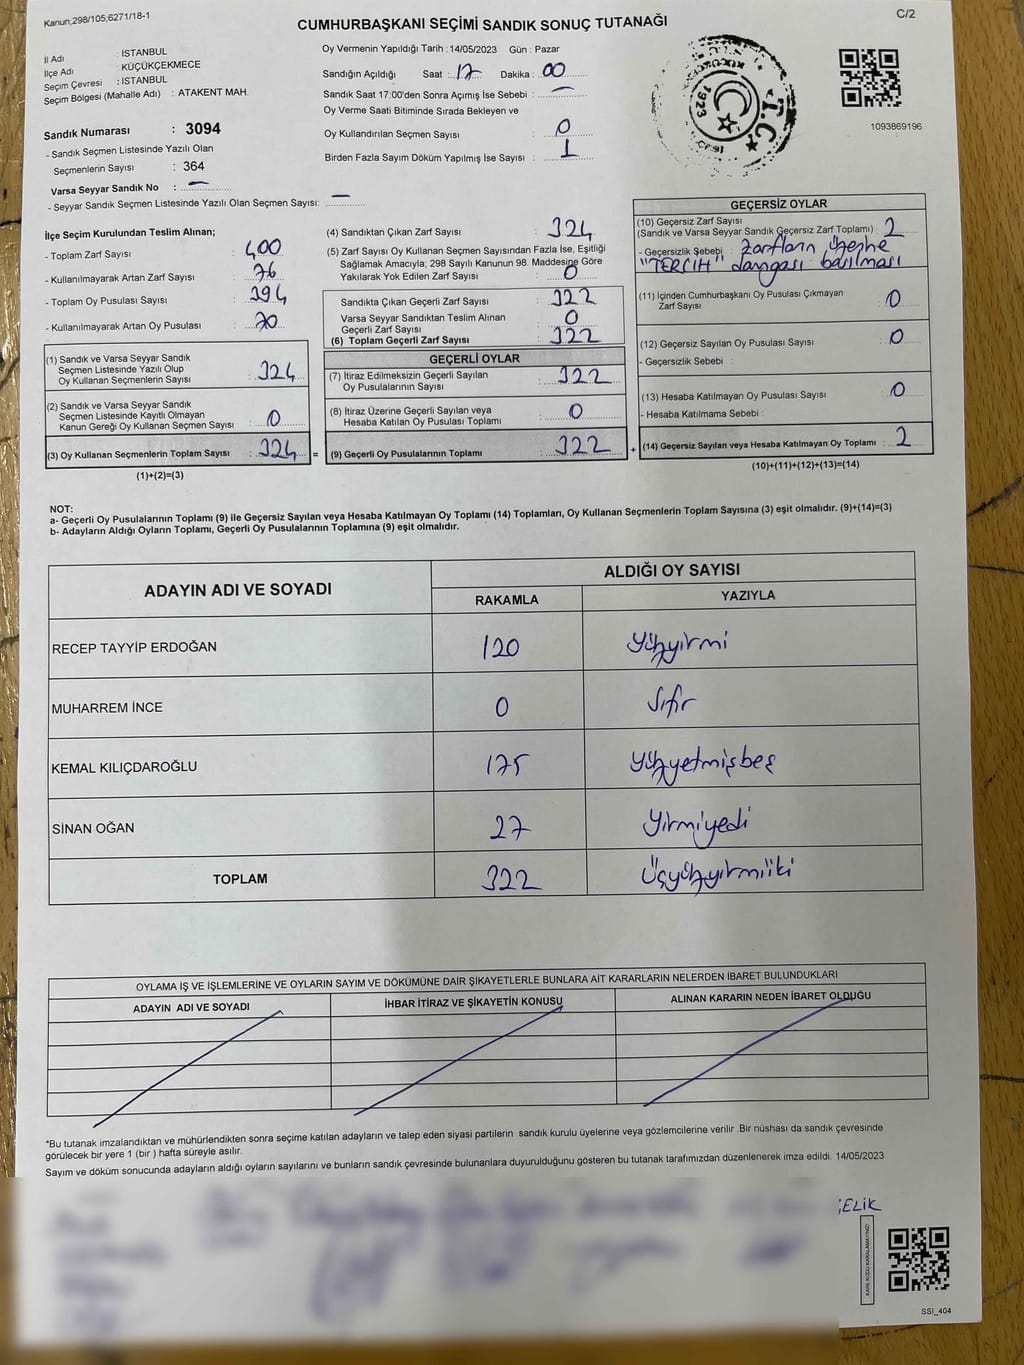 Kanun;298/105;6271/18-1
C/2
CUMHURBAŞKANI SEÇİMİ SANDIK SONUÇ TUTANAĞI
İl Adı : İSTANBUL
İlçe Adı : KÜÇÜKÇEKMECE
Seçim Çevresi : İSTANBUL
Seçim Bölgesi (Mahalle Adı) : ATAKENT MAH.
Oy Vermenin Yapıldığı Tarih : 14/05/2023 Gün : Pazar
Sandığın Açıldığı Saat : 17 Dakika : 00
Sandık Saat 17:00'den Sonra Açımış İse Sebebi : —
Oy Verme Saati Bitiminde Sırada Bekleyen ve
Oy Kullandırılan Seçmen Sayısı : 0
Birden Fazla Sayım Döküm Yapılmış İse Sayısı : 1
T.C.
1923
1093869196
Sandık Numarası : 3094
- Sandık Seçmen Listesinde Yazılı Olan
Seçmenlerin Sayısı : 364
Varsa Seyyar Sandık No : —
- Seyyar Sandık Seçmen Listesinde Yazılı Olan Seçmen Sayısı: —
İlçe Seçim Kurulundan Teslim Alınan;
- Toplam Zarf Sayısı : 400
- Kullanılmayarak Artan Zarf Sayısı : 76
- Toplam Oy Pusulası Sayısı : 394
- Kullanılmayarak Artan Oy Pusulası : 70
(1) Sandık ve Varsa Seyyar Sandık
Seçmen Listesinde Yazılı Olup
Oy Kullanan Seçmenlerin Sayısı : 324
(2) Sandık ve Varsa Seyyar Sandık
Seçmen Listesinde Kayıtlı Olmayan
Kanun Gereği Oy Kullanan Seçmen Sayısı : 0
(3) Oy Kullanan Seçmenlerin Toplam Sayısı : 324 =
(1)+(2)=(3)
(4) Sandıktan Çıkan Zarf Sayısı : 324
(5) Zarf Sayısı Oy Kullanan Seçmen Sayısından Fazla İse, Eşitliği
Sağlamak Amacıyla, 298 Sayılı Kanunun 98. Maddesine Göre
Yakılarak Yok Edilen Zarf Sayısı : 0
Sandıkta Çıkan Geçerli Zarf Sayısı : 322
Varsa Seyyar Sandıktan Teslim Alınan
Geçerli Zarf Sayısı : 0
(6) Toplam Geçerli Zarf Sayısı : 322
GEÇERLİ OYLAR
(7) İtiraz Edilmeksizin Geçerli Sayılan
Oy Pusulalarının Sayısı : 322
(8) İtiraz Üzerine Geçerli Sayılan veya
Hesaba Katılan Oy Pusulası Toplamı : 0
(9) Geçerli Oy Pusulalarının Toplamı : 322 +
GEÇERSİZ OYLAR
(10) Geçersiz Zarf Sayısı
(Sandık ve Varsa Seyyar Sandık Geçersiz Zarf Toplamı) : 2
- Geçersizlik Sebebi : Zarfların üzerine
"TERCİH" damgası basılması
(11) İçinden Cumhurbaşkanı Oy Pusulası Çıkmayan
Zarf Sayısı : 0
(12) Geçersiz Sayılan Oy Pusulası Sayısı : 0
- Geçersizlik Sebebi :
(13) Hesaba Katılmayan Oy Pusulası Sayısı : 0
- Hesaba Katılmama Sebebi :
(14) Geçersiz Sayılan veya Hesaba Katılmayan Oy Toplamı : 2
(10)+(11)+(12)+(13)=(14)
NOT:
a- Geçerli Oy Pusulalarının Toplamı (9) ile Geçersiz Sayılan veya Hesaba Katılmayan Oy Toplamı (14) Toplamları, Oy Kullanan Seçmenlerin Toplam Sayısına (3) eşit olmalıdır. (9)+(14)=(3)
b- Adayların Aldığı Oyların Toplamı, Geçerli Oy Pusulalarının Toplamına (9) eşit olmalıdır.
ADAYIN ADI VE SOYADI
ALDIĞI OY SAYISI
RAKAMLA YAZIYLA
RECEP TAYYİP ERDOĞAN 120 Yüzyirmi
MUHARREM İNCE 0 Sıfır
KEMAL KILIÇDAROĞLU 175 Yüzyetmişbeş
SİNAN OĞAN 27 Yirmiyedi
TOPLAM 322 Üçyüzyirmiiki
OYLAMA İŞ VE İŞLEMLERİNE VE OYLARIN SAYIM VE DÖKÜMÜNE DAİR ŞİKAYETLERLE BUNLARA AİT KARARLARIN NELERDEN İBARET BULUNDUKLARI
ADAYIN ADI VE SOYADI İHBAR İTİRAZ VE ŞİKAYETİN KONUSU ALINAN KARARIN NEDEN İBARET OLDUĞU
*Bu tutanak imzalandıktan ve mühürlendikten sonra seçime katılan adayların ve talep eden siyasi partilerin sandık kurulu üyelerine veya gözlemcilerine verilir .Bir nüshası da sandık çevresinde
görülecek bir yere 1 (bir ) hafta süreyle asılır.
Sayım ve döküm sonucunda adayların aldığı oyların sayılarını ve bunların sandık çevresinde bulunanlara duyurulduğunu gösteren bu tutanak tarafımızdan düzenlenerek imza edildi. 14/05/2023
ELİK
KARE KODU KARALAMAYINIZ!
SSI_404